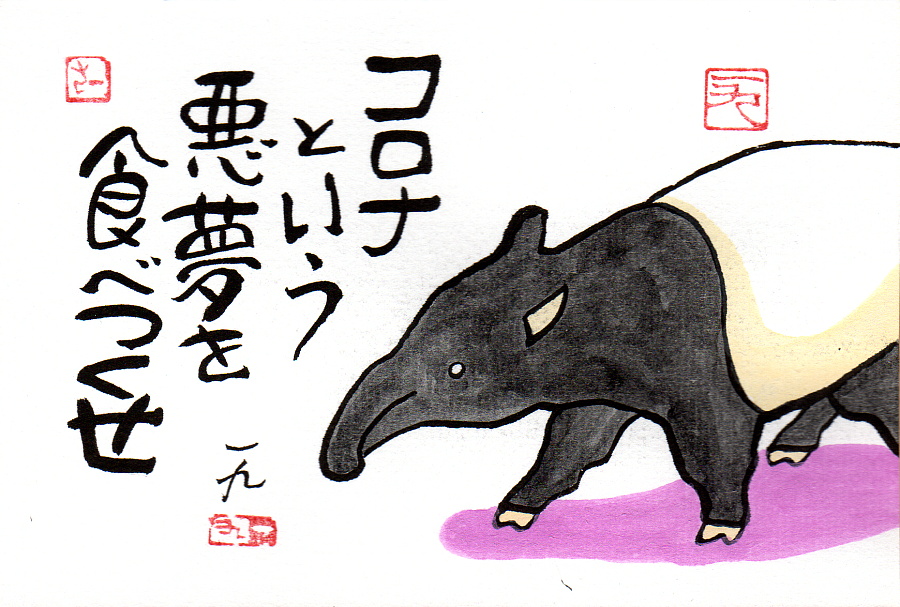 コロナ
という
悪夢を
食べつくせ
一九